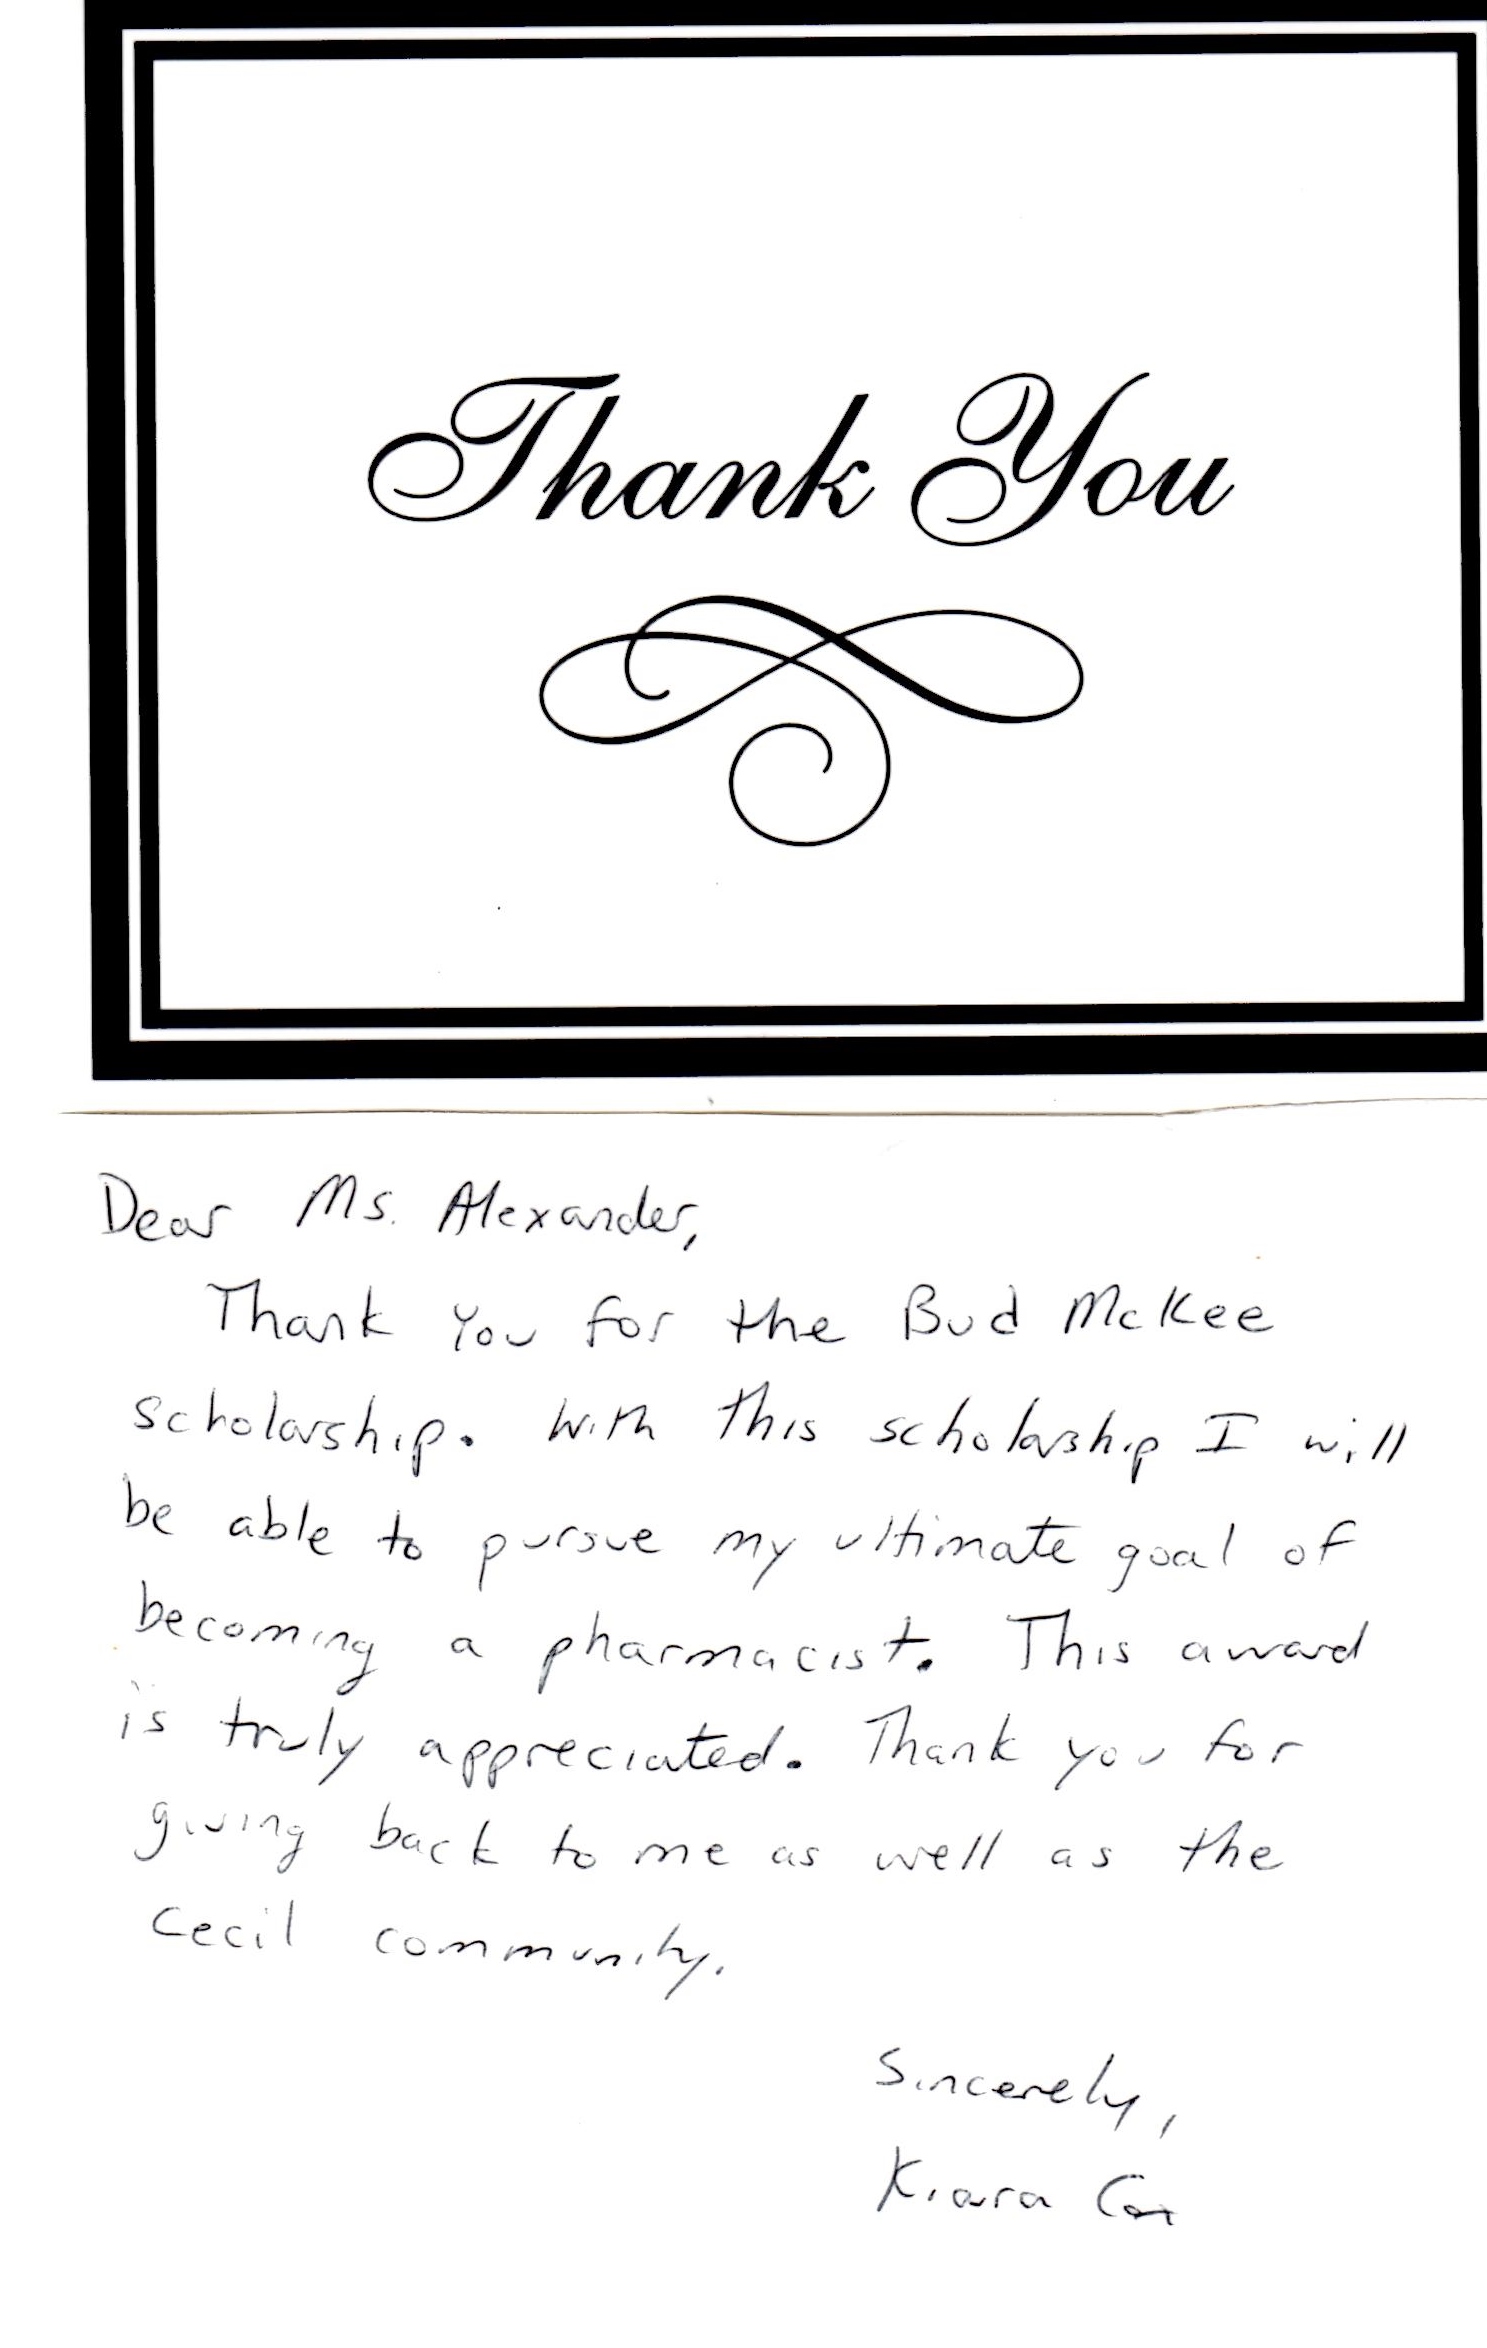 Thank You
Dear Ms. Alexander,
Thank you for the Bud McKee
scholarship. With this scholarship I will
be able to pursue my ultimate goal of
becoming a pharmacist. This award
is truly appreciated. Thank you for
giving back to me as well as the
Cecil community.
Sincerely,
Kiara